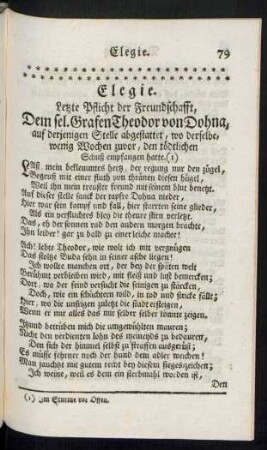 Elegie. 79
Elegie.
Letzte Pflicht der Freundschafft,
Dem sel. Grafen Theodor von Dohna,
auf derjenigen Stelle abgestattet, wo derselbe,
wenig Wochen zuvor, den tödtlichen
Schuß empfangen hatte. (1)
Laß, mein beklemmtes hertz, der regung nur den zügel,
Begeuß mit einer fluth von thränen diesen hügel,
Weil ihn mein treuster freund mit seinem blut benetzt.
Auf dieser stelle sanck der tapfre Dohna nieder,
Hier war sein kampf und fall, hier starrten seine glieder,
Als ein verfluchtes bley die theure stirn verletzt.
Das, eh der sonnen rad den andern morgen brachte,
Ihn leider! gar zu bald zu einer leiche machte!
Ach! lebte Theodor, wie wolt ich mit vergnügen
Das stoltze Buda sehn in seiner asche liegen!
Ich wollte manchen ort, der bey der spätten welt
Berühmt verbleiben wird, mit fleiß und lust bemercken;
Dort, wo der feind versucht die seinigen zu stärcken,
Doch, wie ein schüchtern wild, in tod und stricke fällt;
Hier, wo die unsrigen zuletzt die stadt ersteigen,
Wenn er mir alles das mir selber selber könnte zeigen.
Itzund betrüben mich die umgewühlten mauren;
Nicht den verdienten lohn des meineyds zu bedauren,
Den sich der himmel selbst zu straffen ausgerüst;
Es müsse fehrner noch der hund dem adler weichen!
Man jauchtzt mit gutem recht bey diesem sieges-zeichen;
Ich weine, weil es dem ein sterbmahl worden ist,
Den
(1) Im Sturme vor Offen.